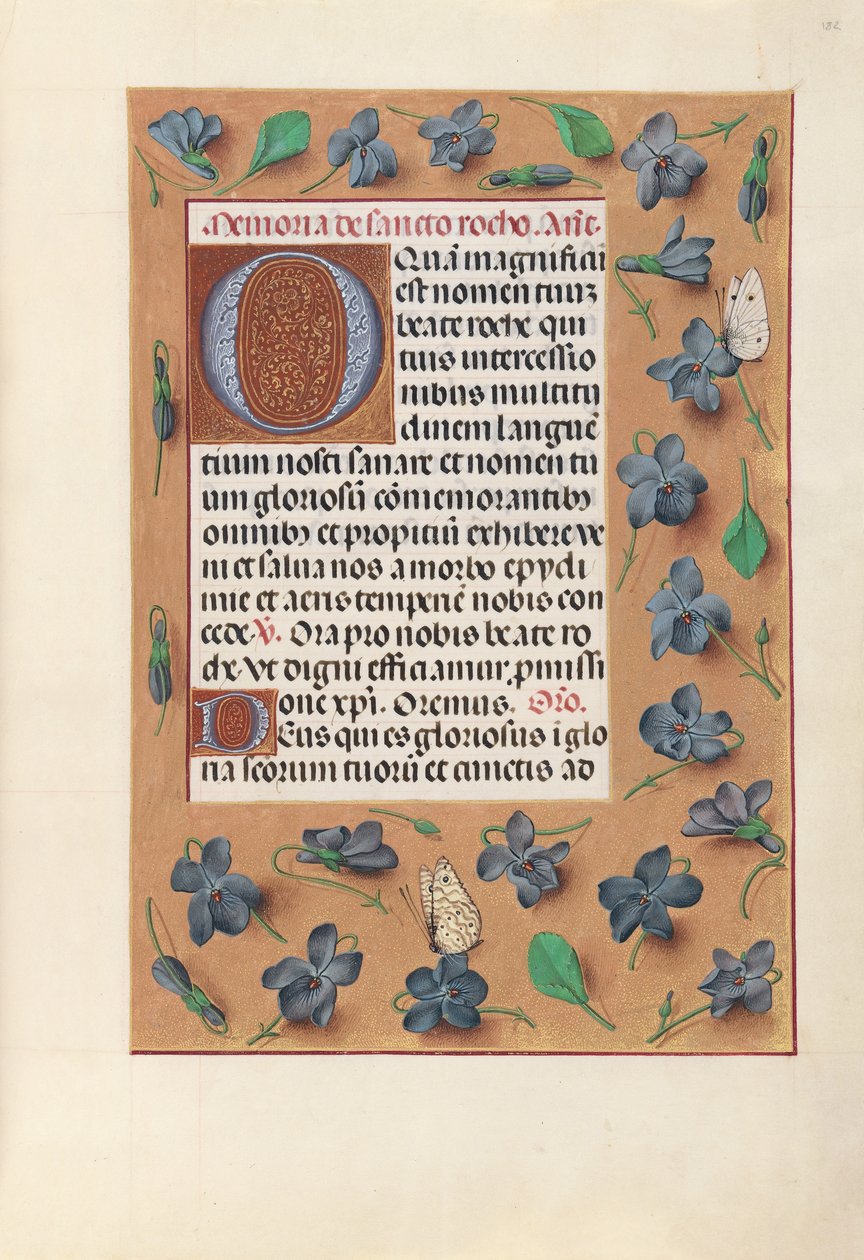 182
Memoria de sancto rocho. Añt.
OQuā magnificū
est nomen tuuʒ
beate roche qui
tuis intercessio
nibus multitu
dinem languē
tium nosti sanare et nomen tu
um gloriosū cōmemorantibꝰ
omnibꝰ et propitiū exhibere ve
ni et salua nos a morbo epydi
mie et aeris temperiē nobis con
cede. V̄. Ora pro nobis beate ro
che. Vt digni efficiamur ꝓmissi
one xp̄i. Oremus. Orō.
Deus qui es gloriosus ī glo
ria scōrum tuorū et cunctis ad